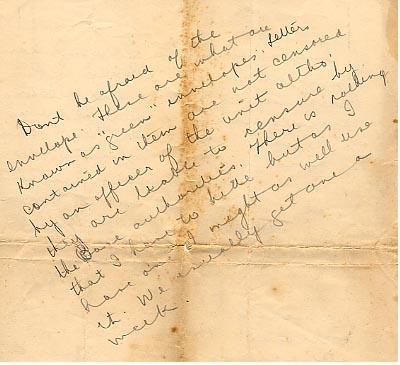 Dont be afraid of the
envelope. These are what are
known as "green" envelopes. Letters
contained in item are not censored
by an officer of the unit altho.
they are liable to censure by
the Base authorities. There is nothing
that I have to hide but as I
have one I might as well use
it. We usually get one a
week